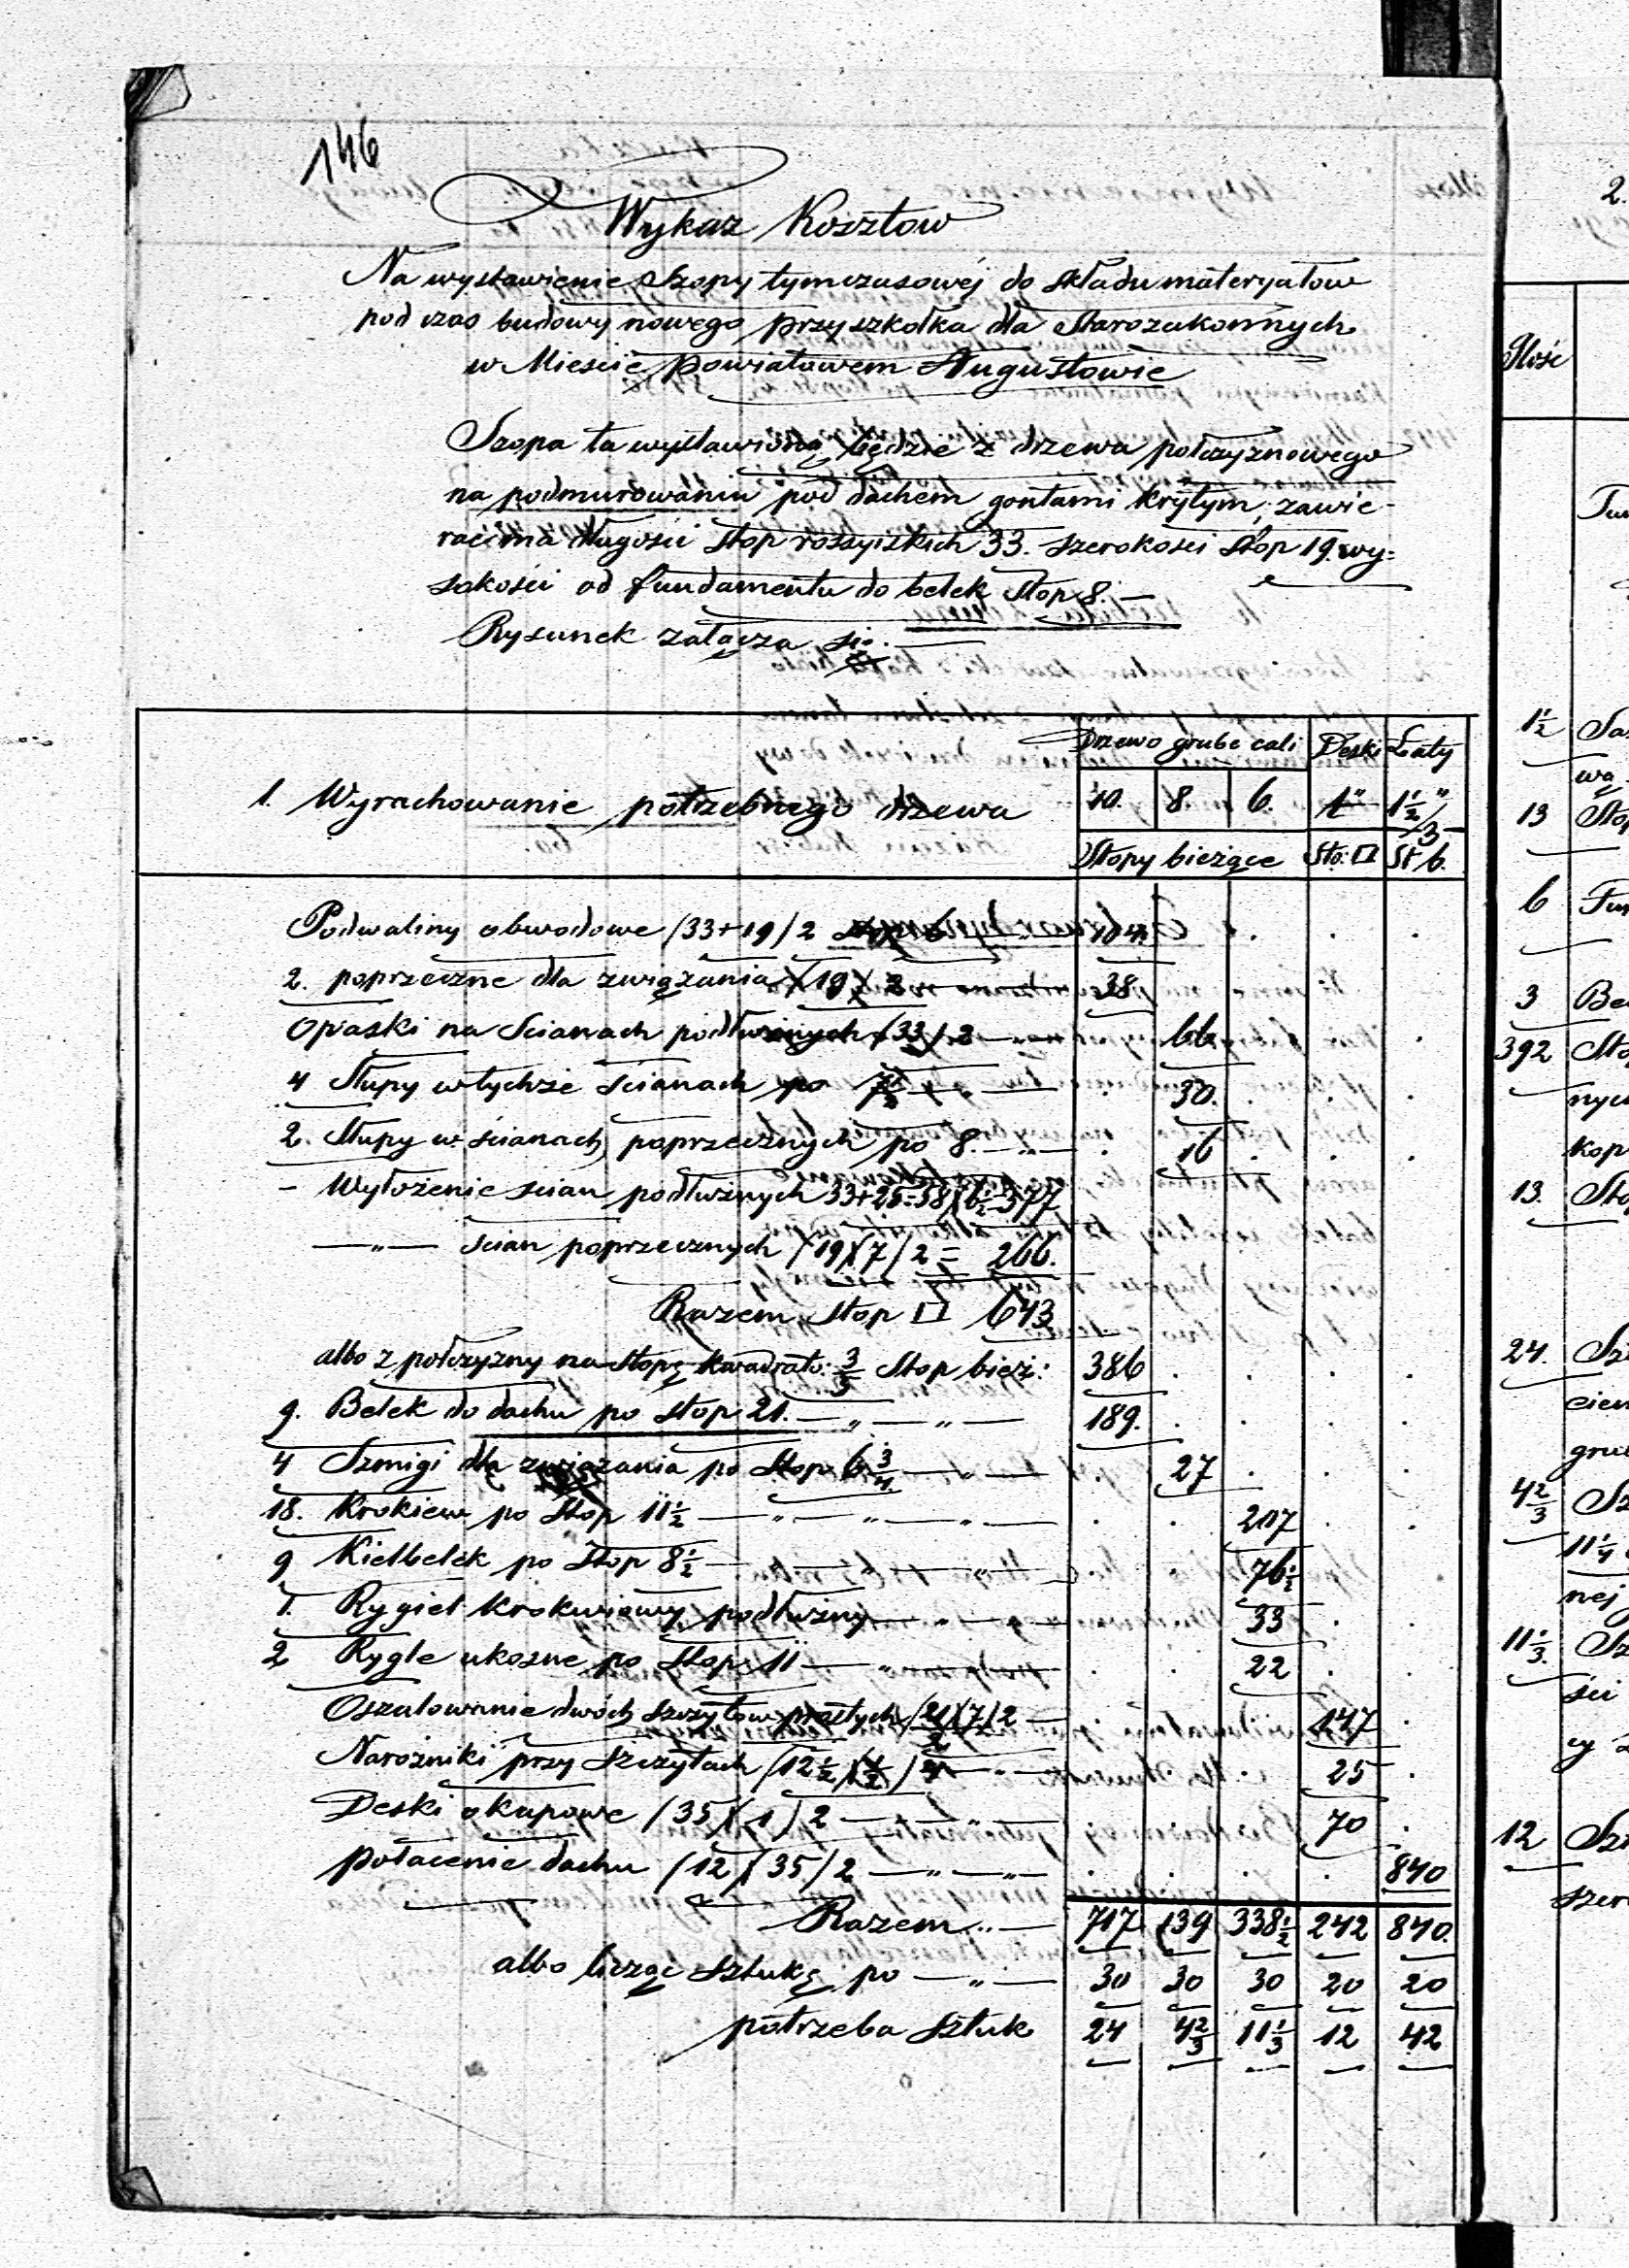 146
Wykaz Kosztow
Na wystawienie Szopy tymczasowéj do składu materyałow
pod czas budowy nowego przyszkołka dla Starozakonnych
w Mieście powiatowem Augustowie
Szopa ta wystawioną będzie z drzewa połczyznowego
na podmurowaniu pod dachem gontami krytym, zawie-
rać ma długości stop rossyiskich 33. szerokości stop 19. wy=
sokości od fundamentu do belek stop 8. —
Rysunek załącza się. —
Drzewo grube cali Deski Łaty
1. Wyrachowanie potrzebnego drzewa 10. 8. 6. 1" 1½"/3
Stopy bieżące Sto: □ St b.
Podwaliny obwodowe /33+19/2 104
2. poprzeczne dla związania /19/ 2 38
Opaski na Scianach podłużnych /33/2 — 66
4 Słupy w tychże scianach po 7½ — " — 30.
2. Słupy w ścianach poprzecznych po 8. — " — 16
- Wyłożenie scian podłużnych 33+25=58)(6½=377
— " — scian poprzecznych /19)(7/2 = 266.
Razem Stop □ 643
albo z połczyzny na stopę kwadrato: 3/5 Stop bież: 386
9. Belek do dachu po stop 21. — " — " — 189.
4 Szmigi dla związania po Stop 6¾ — " — 27
18. Krokiew po Stop 11½ — " — " — " — 207
9 Kielbelek po Stop 8½ — " — 76½
1. Rygiel krokwiowy podłużny — " — 33
2 Rygle ukosne po Stop 11 — " — 22
Oszalowanie dwóch szczytow prostych /21/2)(7/2 — 147
Narożniki przy Szczytach /12½)(½/4 — " — 25
Deski okapowe /35)(1/2 — " — 70
połacenie dachu /12)(35/2 — " — " 840
Razem .. — 717 139 338½ 242 840.
albo licząc Sztukę po — " — 30 30 30 20 20
potrzeba Sztuk 24 4⅔ 11⅓ 12 42
2.
Ilość
1½
wą
13 Stop
6
3
392
nych
kop
13.
24.
grub
4⅔
11¼
nej
11⅓
ści
12
szer